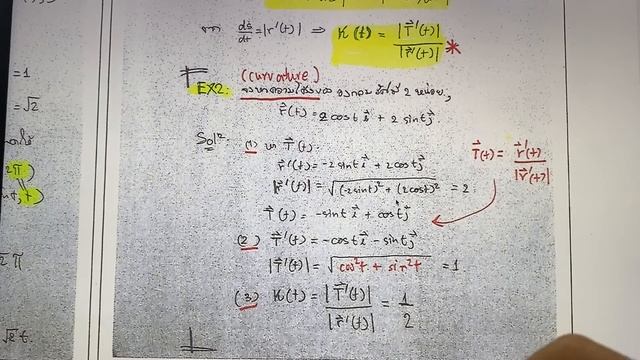 จาก ds/dt = |r'(t)| ⇒ K(t) = |T⃗'(t)| / |r⃗'(t)| *
= 1
(curvature)
EX2. จงหาความโค้งของ วงกลม รัศมี 2 หน่วย,
= √2
r⃗(t) = 2 cost i⃗ + 2 sint j⃗.
Solⁿ.
(1) หา T⃗(t).
T⃗(t) = r⃗'(t) / |r⃗'(t)|
r⃗'(t) = -2sint i⃗ + 2cost j⃗
2π
|r⃗'(t)| = √((-2sint)² + (2cost)²) = 2
T⃗(t) = -sint i⃗ + cost j⃗
(2) T⃗'(t) = -cost i⃗ - sint j⃗
2π
|T⃗'(t)| = √(cos²t + sin²t) = 1
(3) K(t) = |T⃗'(t)| / |r⃗'(t)| = 1/2
√2 t.